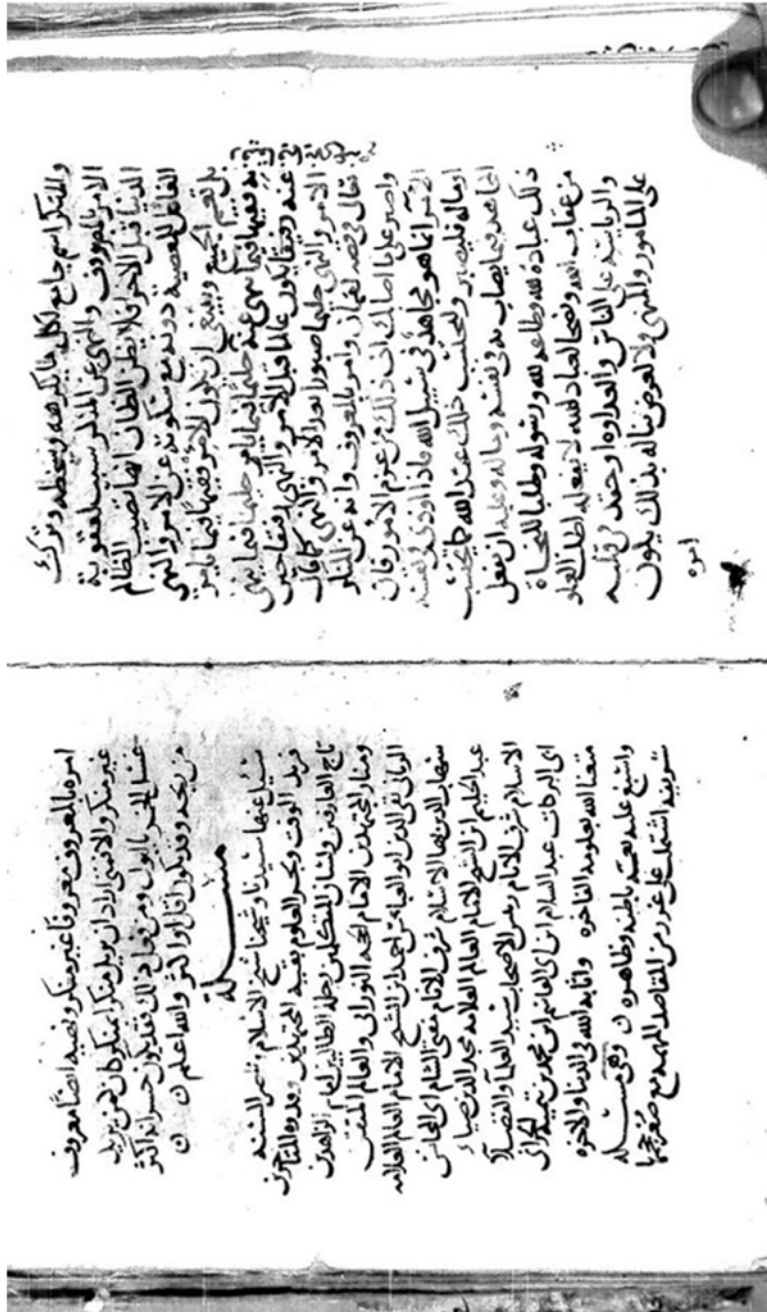 والمنكر اسم جامع لكل ما يكرهه ويسخطه وترك
الامر بالمعروف والنهي عن المنكر سبب لعقوبة
الدنيا قبل الاخرة فلا يظن الظان انها تصيب الظالم
الفاعل للمعصية دونه مع سكوته عن الامر والنهي
بل تعم الجميع وينبغي ان يكون الآمر فقيها فيما يامر
به فقيها فيما ينهى عنه حليما فيما يامر حليما فيما ينهى
عنه رفيقا يكون عالما قبل الامر والنهي رفيقا حين
الامر والنهي حليما صبورا بعد الامر والنهي كما قال
تعالى في قصه لقمان وامر بالمعروف وانه عن المنكر
واصبر على ما اصابك ان ذلك من عزم الامور فان
الآمر انما هو مجاهد في سبيل الله فاذا اوذي في نفسه
او ماله فليصبر وليحتسب ذلك عند الله كما يحتسب
المجاهد فيما يصاب به في نفسه وماله وعليه ان يفعل
ذلك عبادة لله وطاعه لله ورسوله وطلبا للنجاة
من عقاب الله ونصحا لعباد لله لا يفعله لطلب العلو
والرياسة على الناس والعداوه او حقد في قلبه
على المامور والمنهي ولا لغرض يناله بذلك يكون
امره
امره بالمعروف معروفا غير منكر ونهيه ايضا معروف
غير منكر والا فمتى اراد ان يزيل منكرا بمنكر كان كمن يريد
غسل الخمر بالبول ومن فعل ذلك فقد يكون خسرانه اكثر
من ربحه وقد يكون اقل او اكثر والله اعلم
مسالة
سئل عنها سيدنا وشيخنا شيخ الاسلام شمس السنه
فريد الوقت وبحر العلوم بقية المجتهدين وعدة المتاخرين
تاج العارفين ولسان المتكلمين رحلة الطالبين امام الزاهدين
ومنار المجتهدين الامام الحجه النوراني والعالم المتقن
الرباني تقي الدين ابو العباس احمد ابن الشيخ الامام العالم العلامه
شهاب الدين بها الاسلام شرف الانام مفتي الشام ابي المحاسن
عبد الحليم ابن الشيخ الامام العالم العلامه مجد الدين ضياء
الاسلام شرف الانام رئيس الاصحاب سيد العلما والفضلا
ابي البركات عبد السلام ابن ابي القاسم ابن محمد بن تيمية الحراني
متعنا الله بعلومه الفاخره واثابه الله في الدنيا والاخره
واسبغ عليه نعمه باطنه وظاهره وهي مسالة
شريفه اشتملت على غرر من المقاصد المهمه مع صغر حجمها